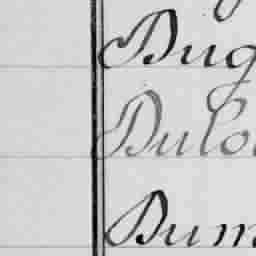 Dug
Dulo
Dum